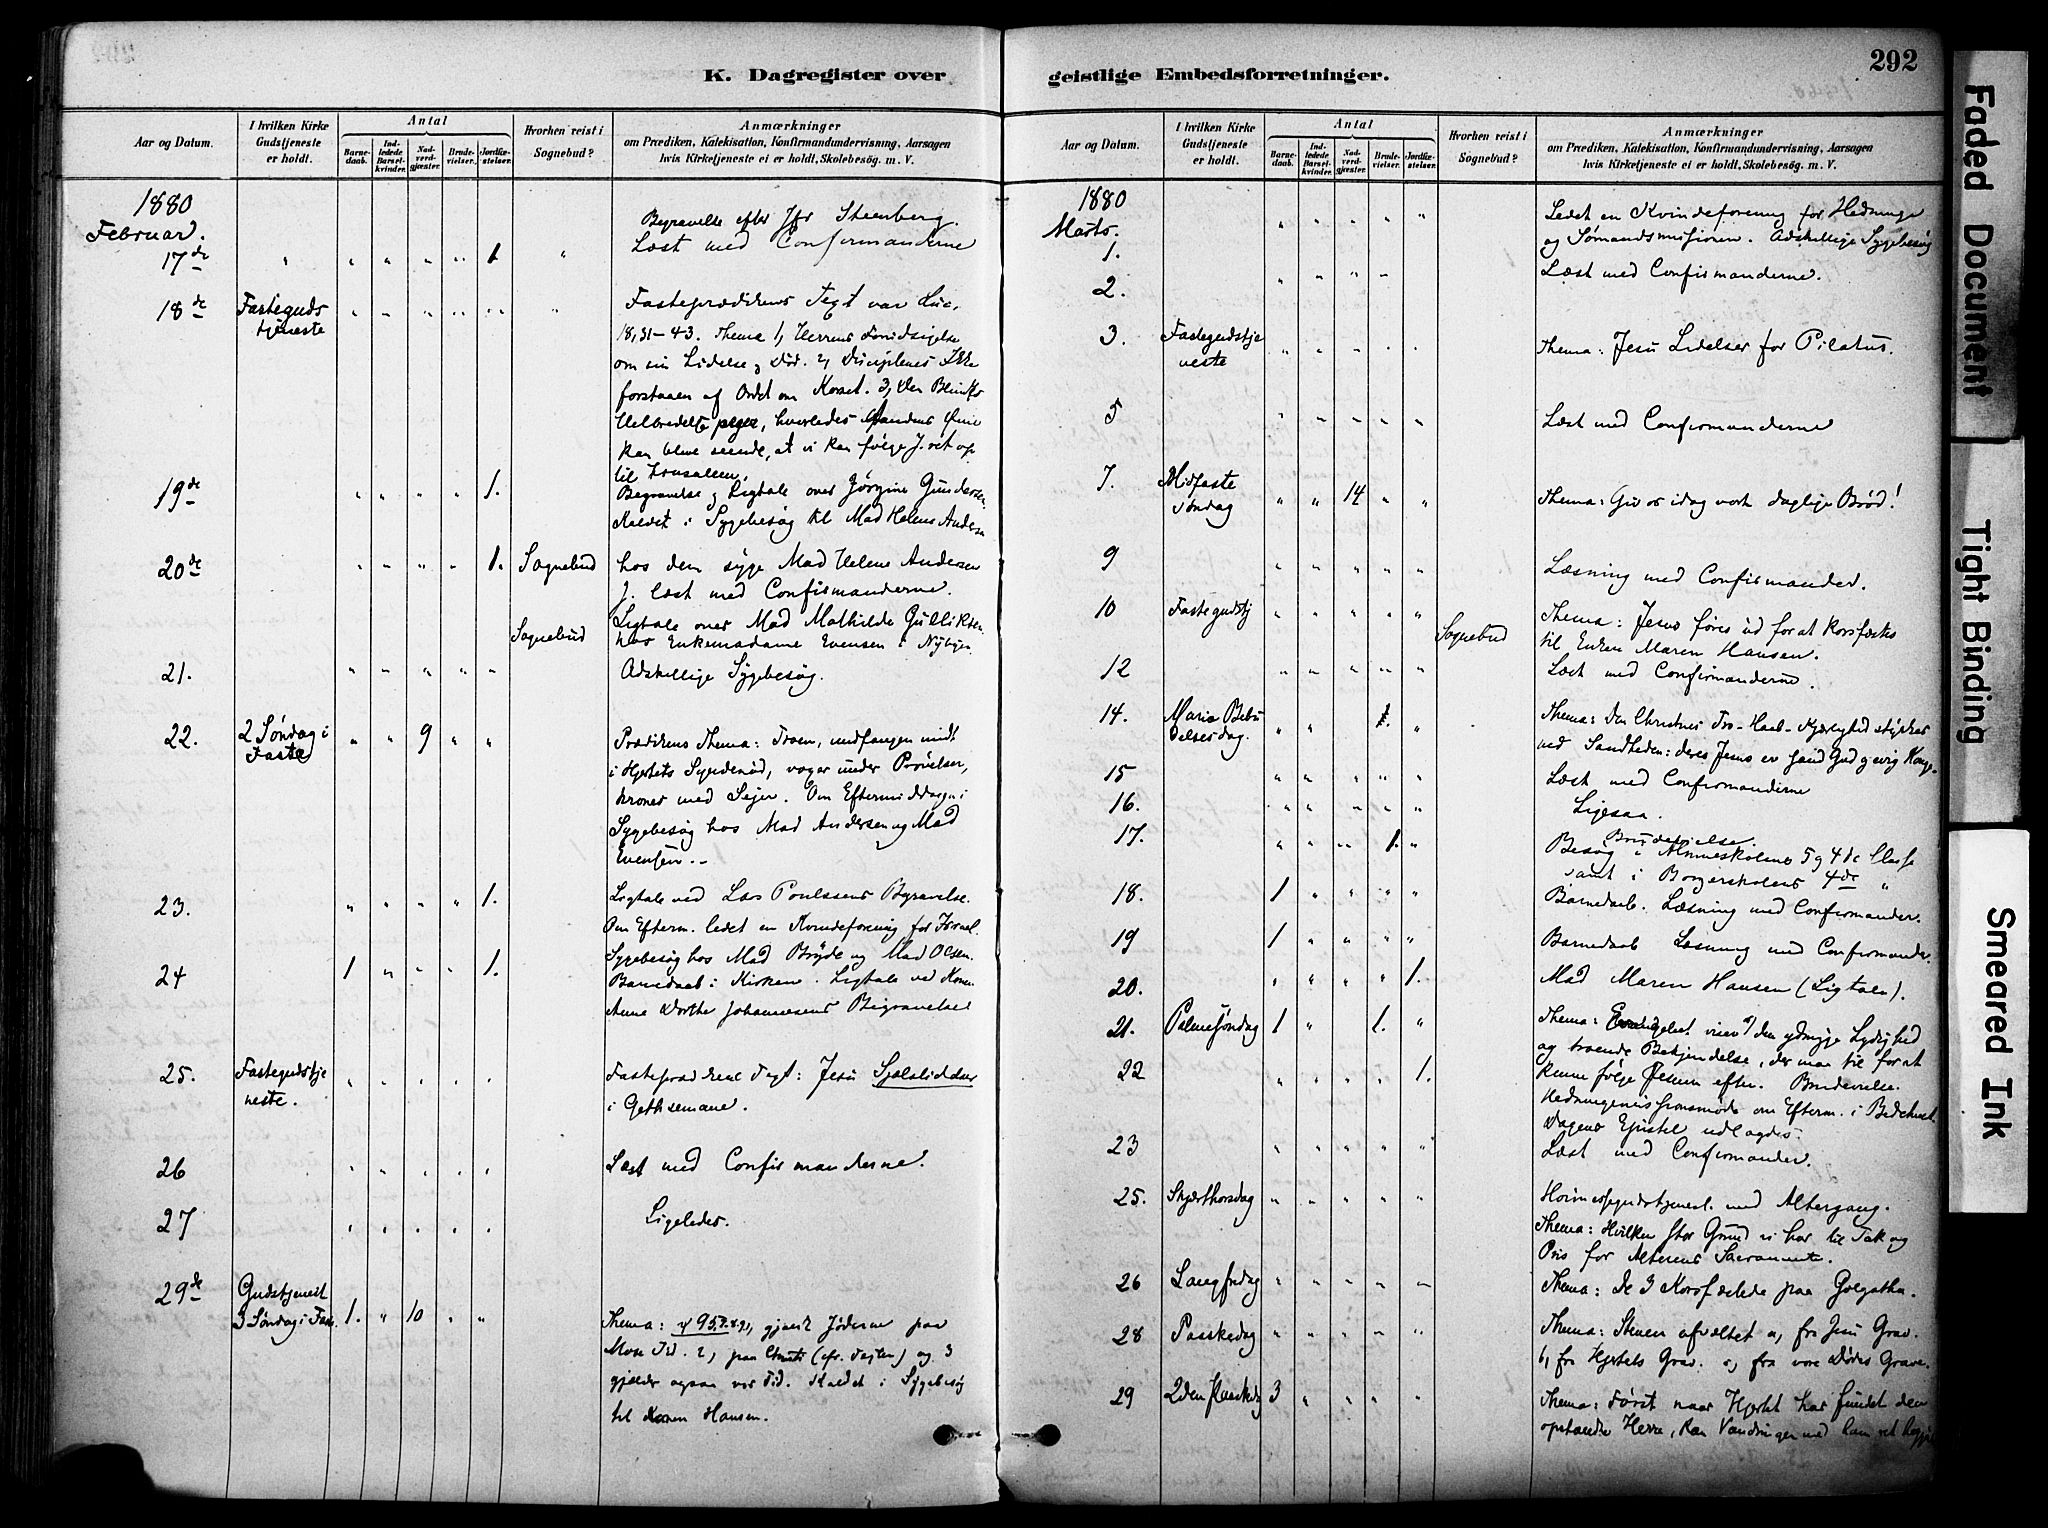 K. Dagregister over
Aar og Datum.
I hvilken Kirke Gudstjeneste er holdt.
Antal
Barnedaab.
Indledede Barselkvinder.
Nadverdgjæster.
Brudevielser.
Jordfæstelser.
Hvorhen reist i Sognebud?
Anmærkninger
om Prædiken, Katekisation, Konfirmandundervisning, Aarsagen
hvis Kirketjeneste ei er holdt, Skolebesøg. m. V.
1880
Februar.
Begravelse efter Jfr Steenberg.
17de " " " " " 1 " Læst med Confirmanderne
18de Fastegudstjeneste " " " " " " Fasteprædikens Text var Luc.
18,31-43. Thema 1, Herrens Forudsigelse
om sin Lidelse og Død. 2, Disciplenes Ikke
forstaaen af Ordet om Korset. 3, den Blindes
Helbredelse peger, hvorledes Aandens Øine
kan blive seende, at vi kan følge J. ret op
til Jerusalem.
19de " " " " 1. Begravelse og Ligtale over Jørgine Gundersen
Kaldet i Sygebesøg til Mad Helene Andersen
20de " " " " 1. Sognebud hos den syge Mad Helene Andersen
J. læst med Confirmanderne.
Ligtale over Mad Mathilde Gulliksen.
Sognebud hos Enkemadame Evensen i Nybyen
21. " " " " " Adskillige Sygebesøg.
22. 2 Søndag i Faste " " 9 " " Prædikens Thema: Troen, undfangen midt
i Hjertets Syndenød, voxer under Prøvelser,
krones med Sejer. Om Eftermiddagen i
Sygebesøg hos Mad Andersen og Mad
Evensen.-
23. " " " " 1. Ligtale ved Lars Poulssens Begravelse.
Om Efterm. ledet en Kvindeforening for Israel.
Sygebesøg hos Mad Bryde og Mad Olsen.
24 1 " " " 1. Barnedaab i Kirken. Ligtale ved Konen
Anne Dorthe Johannesens Begravelse
25. Fastegudstjeneste. " " " " " Fasteprædiken Text: Jesu Sjælslidelser
i Gethsemane.
26 " " " " " Læst med Confirmanderne.
27 " " " " " Ligeledes.
29de Gudstjenest
3 Søndag i Fast. 1. " 10 " " Thema: gjaldt Jøderne paa
Mose Tid. 2, paa Christi (cfr. Texten) og 3
gjælder ogsaa vor Tid. Kaldet i Sygebesøg
til Maren Hansen.
geistlige Embedsforretninger.
292
Aar og Datum.
I hvilken Kirke Gudstjeneste er holdt.
Antal
Barnedaab.
Indledede Barselkvinder.
Nadverdgjæster.
Brudevielser.
Jordfæstelser.
Hvorhen reist i Sognebud?
Anmærkninger
om Prædiken, Katekisation, Konfirmandundervisning, Aarsagen
hvis Kirketjeneste ei er holdt, Skolebesøg. m. V.
1880
Marts.
1. " " " " " Ledet en Kvindeforening for Hedninge
og Sømandsmissionen. Adskillige Sygebesøg
2. " " " " Læst med Confirmanderne.
3. Fastegudstjeneste " " " " " Thema: Jesu Lidelser for Pilatus.
5 " " " " " Læst med Confirmanderne
7. Midfaste Søndag " " 14 " " Thema: Giv os idag vort daglige Brød!
9 " " " " " Læsning med Confirmander.
10 Fastegudstj " " " " " Sognebud Thema: Jesus føres ud for at korsfæstes
til Enken Maren Hansen.
12 " " " " " Læst med Confirmanderne.
14. Maria Bebudelsesdag. " " 1. " Thema: Den Christnes Tro-Haab-Kjærlighed styrkes
ved Sandheden: deres Jesus er sand Gud og evig Konge.
15 " " " " " Læst med Confirmanderne
16. " " " " " Ligesaa.
17. " " " 1. " Brudevielse.
Besøg i Almueskolens 5 og 4de Classe
samt i Borgerskolens 4de "
18. 1 " " " " Barnedaab. Læsning med Confirmander.
19 1 " " " " Barnedaab Læsning med Confirmander.
20. " " " " 1. Mad Maren Hansen (Ligtalen).
21. Palmesøndag 1 " 1. " Thema: Evangeliet viser os den ydmyge Lydighed
og troende Bekjendelse, der maa til for at
22 " " " " 1. kunne følge Jesum efter. Brudevielse.
Hedningemissionsmøde om Efterm. i Bedehuset.
Dagens Epistel udlagdes.
23 " " " " " Læst med Confirmander.
25. Skjærthorsdag " " " " " Høimessegudstjenest. med Altergang.
Thema: Hvilken stor Grund vi har til Tak og
Pris for Alterens Sacramente.
26 Langfredag " " " " " Thema: De 3 Korsfæstede paa Golgatha.
28 Paaskedag " " " " " Thema: Stenen afvæltet a, fra Jesu Grav.
b, fra Hjertets Grav. c, fra vore Dødes Grave.
29 2den Paaskedag 3 " " " " Thema: Først naar Hjertet har fundet den
opstandne Herre, kan Vandringen med ham ret begynde
Faded Document
Tight Binding
Smeared Ink